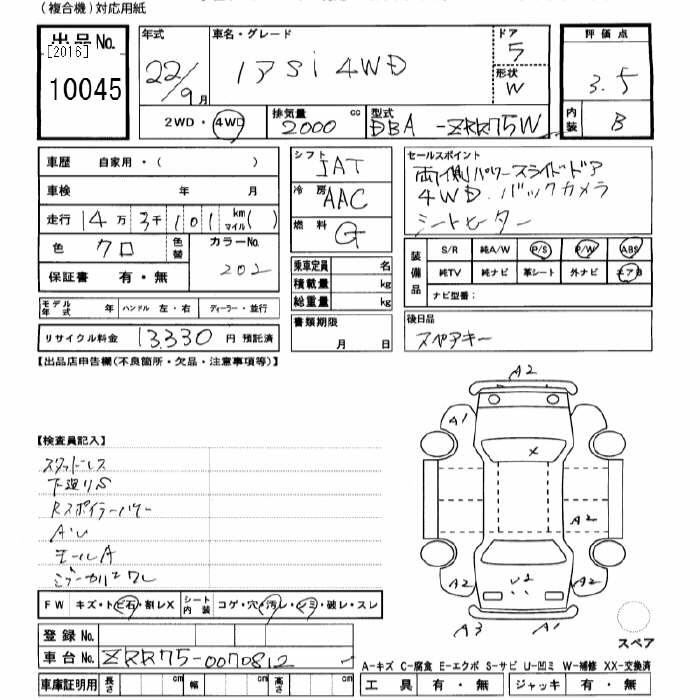 (複合機)対応用紙
出品No.
[2016]
10045
年式
22/9月
車名・グレード
アSi 4WD
ドア
5
形状
W
評価点
3.5
内装
B
2WD・4WD
排気量
2000 cc
型式
DBA-ZRR75W
車歴 自家用・( )
車検 年 月
走行 14万3千101 km マイル( )
色 クロ 色替
カラーNo.
202
保証書 有・無
シフト
IAT
冷房
AAC
燃料
G
乗車定員 名
積載量 kg
総重量 kg
セールスポイント
両側パワースライドドア
4WD. バックカメラ
シートヒーター
装備品
S/R 純A/W P/S P/W ABS
純TV 純ナビ 革シート 外ナビ エアB
ナビ型番:
モデル年式 年 ハンドル 左・右 ディーラー・並行
リサイクル料金 13,330 円 預託済
書類期限
月 日
後日品
スペアキー
【出品店申告欄(不良箇所・欠品・注意事項等)】
【検査員記入】
スタッドレス
下廻りS
Rスポイラー
A・U
モールA
ミラーカバーワレ
FW キズ・トビ石・割レX シート内装 コゲ・穴・汚レ・シミ・破レ・スレ
登録No.
車台No. ZRR75-0070812
車庫証明用 長さ cm 幅 cm 高さ cm
A2
A1
X
A2
A2
U2
A2
A3
A1
スペア
A-キズ C-腐食 E-エクボ S-サビ U-凹ミ W-補修 XX-交換済
工具 有・無 ジャッキ 有・無